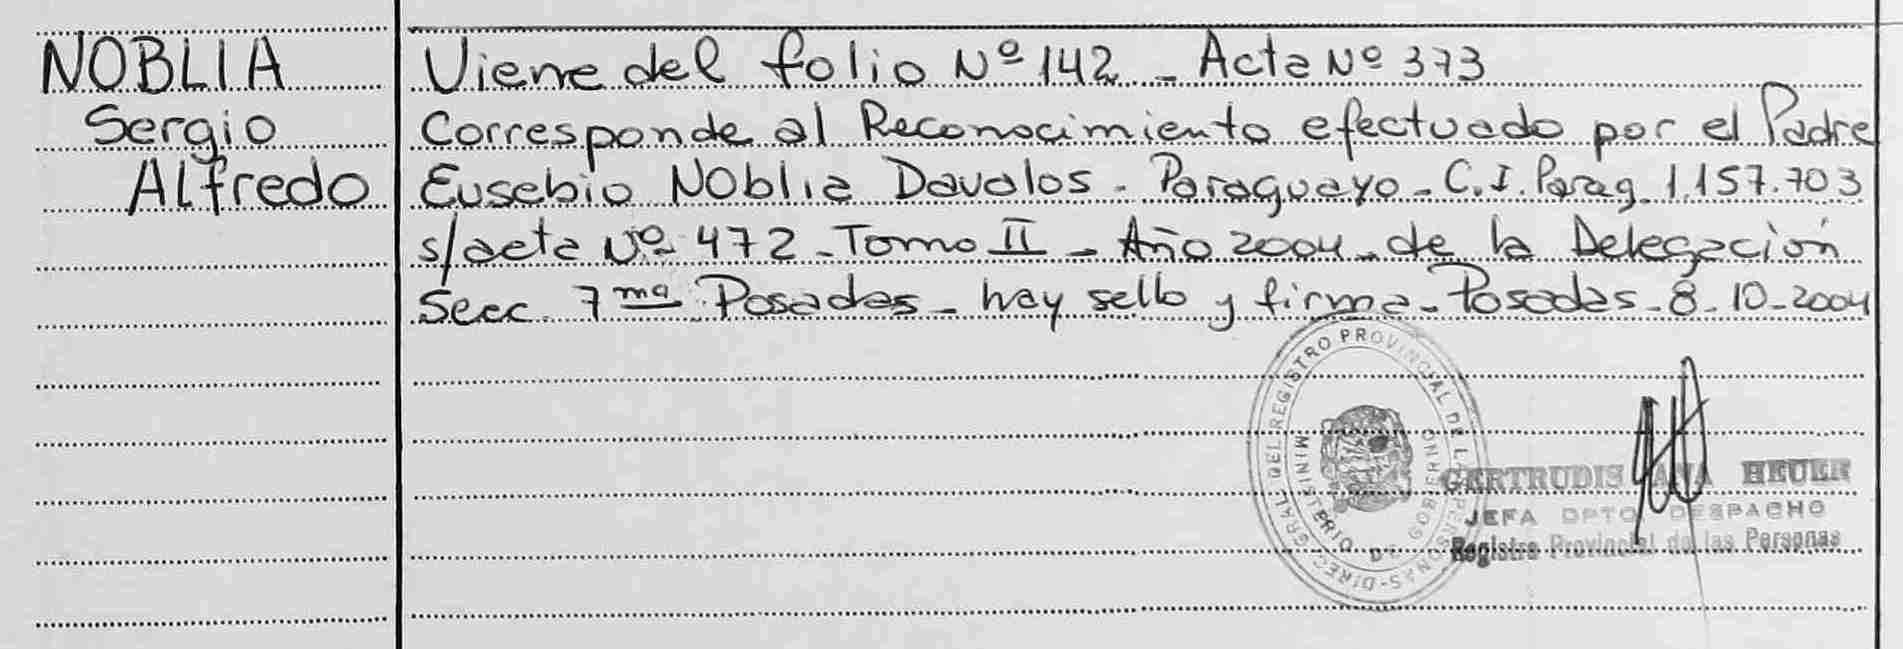 NOBLIA
Sergio
Alfredo
Viene del folio Nº 142 - Acta Nº 373
Corresponde al Reconocimiento efectuado por el Padre
Eusebio Noblia Davalos - Paraguayo - C.I. Parag. 1.157.703
s/acta Nº 472 - Tomo II - Año 2004 - de la Delegación
Secc. 7ma Posadas - hay sello y firma - Posadas - 8-10-2004
DIREC. GRAL. DEL REGISTRO PROVINCIAL DE LAS PERSONAS
MINISTERIO DE GOBIERNO
GERTRUDIS ANA HEUER
JEFA DPTO DESPACHO
Registro Provincial de las Personas